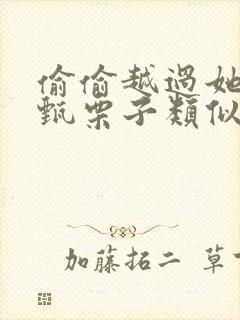 偷偷越過她
甄栗子類似
加藤拓二 草